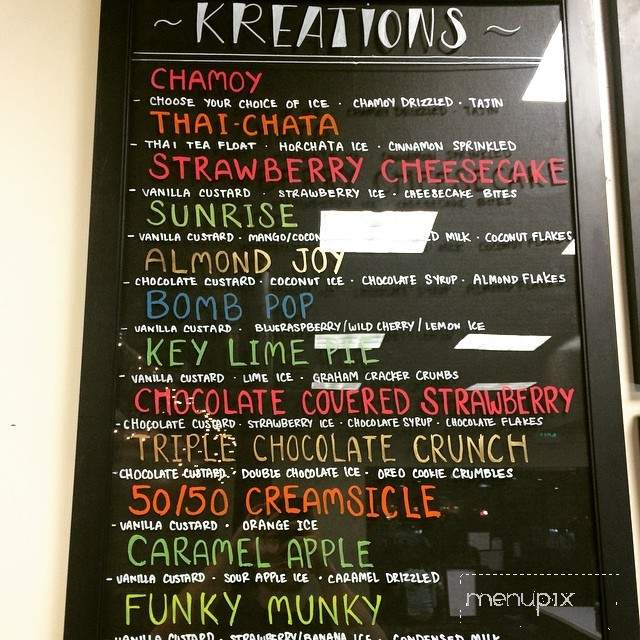 ~ KREATIONS ~
CHAMOY
- CHOOSE YOUR CHOICE OF ICE · CHAMOY DRIZZLED · TAJIN
THAI-CHATA
- THAI TEA FLOAT · HORCHATA ICE · CINNAMON SPRINKLED
STRAWBERRY CHEESECAKE
- VANILLA CUSTARD · STRAWBERRY ICE · CHEESECAKE BITES
SUNRISE
- VANILLA CUSTARD · MANGO/ MILK · COCONUT FLAKES
ALMOND JOY
- CHOCOLATE CUSTARD · COCONUT ICE · CHOCOLATE SYRUP · ALMOND FLAKES
BOMB POP
- VANILLA CUSTARD · BLUERASPBERRY/WILD CHERRY/LEMON ICE
KEY LIME PIE
- VANILLA CUSTARD · LIME ICE · GRAHAM CRACKER CRUMBS
CHOCOLATE COVERED STRAWBERRY
- CHOCOLATE CUSTARD · STRAWBERRY ICE · CHOCOLATE SYRUP · CHOCOLATE FLAKES
TRIPLE CHOCOLATE CRUNCH
- CHOCOLATE CUSTARD · DOUBLE CHOCOLATE ICE · OREO COOKIE CRUMBLES
50/50 CREAMSICLE
- VANILLA CUSTARD · ORANGE ICE
CARAMEL APPLE
- VANILLA CUSTARD · SOUR APPLE ICE · CARAMEL DRIZZLED
FUNKY MUNKY
- VANILLA CUSTARD · STRAWBERRY/BANANA ICE · CONDENSED MILK
menupix